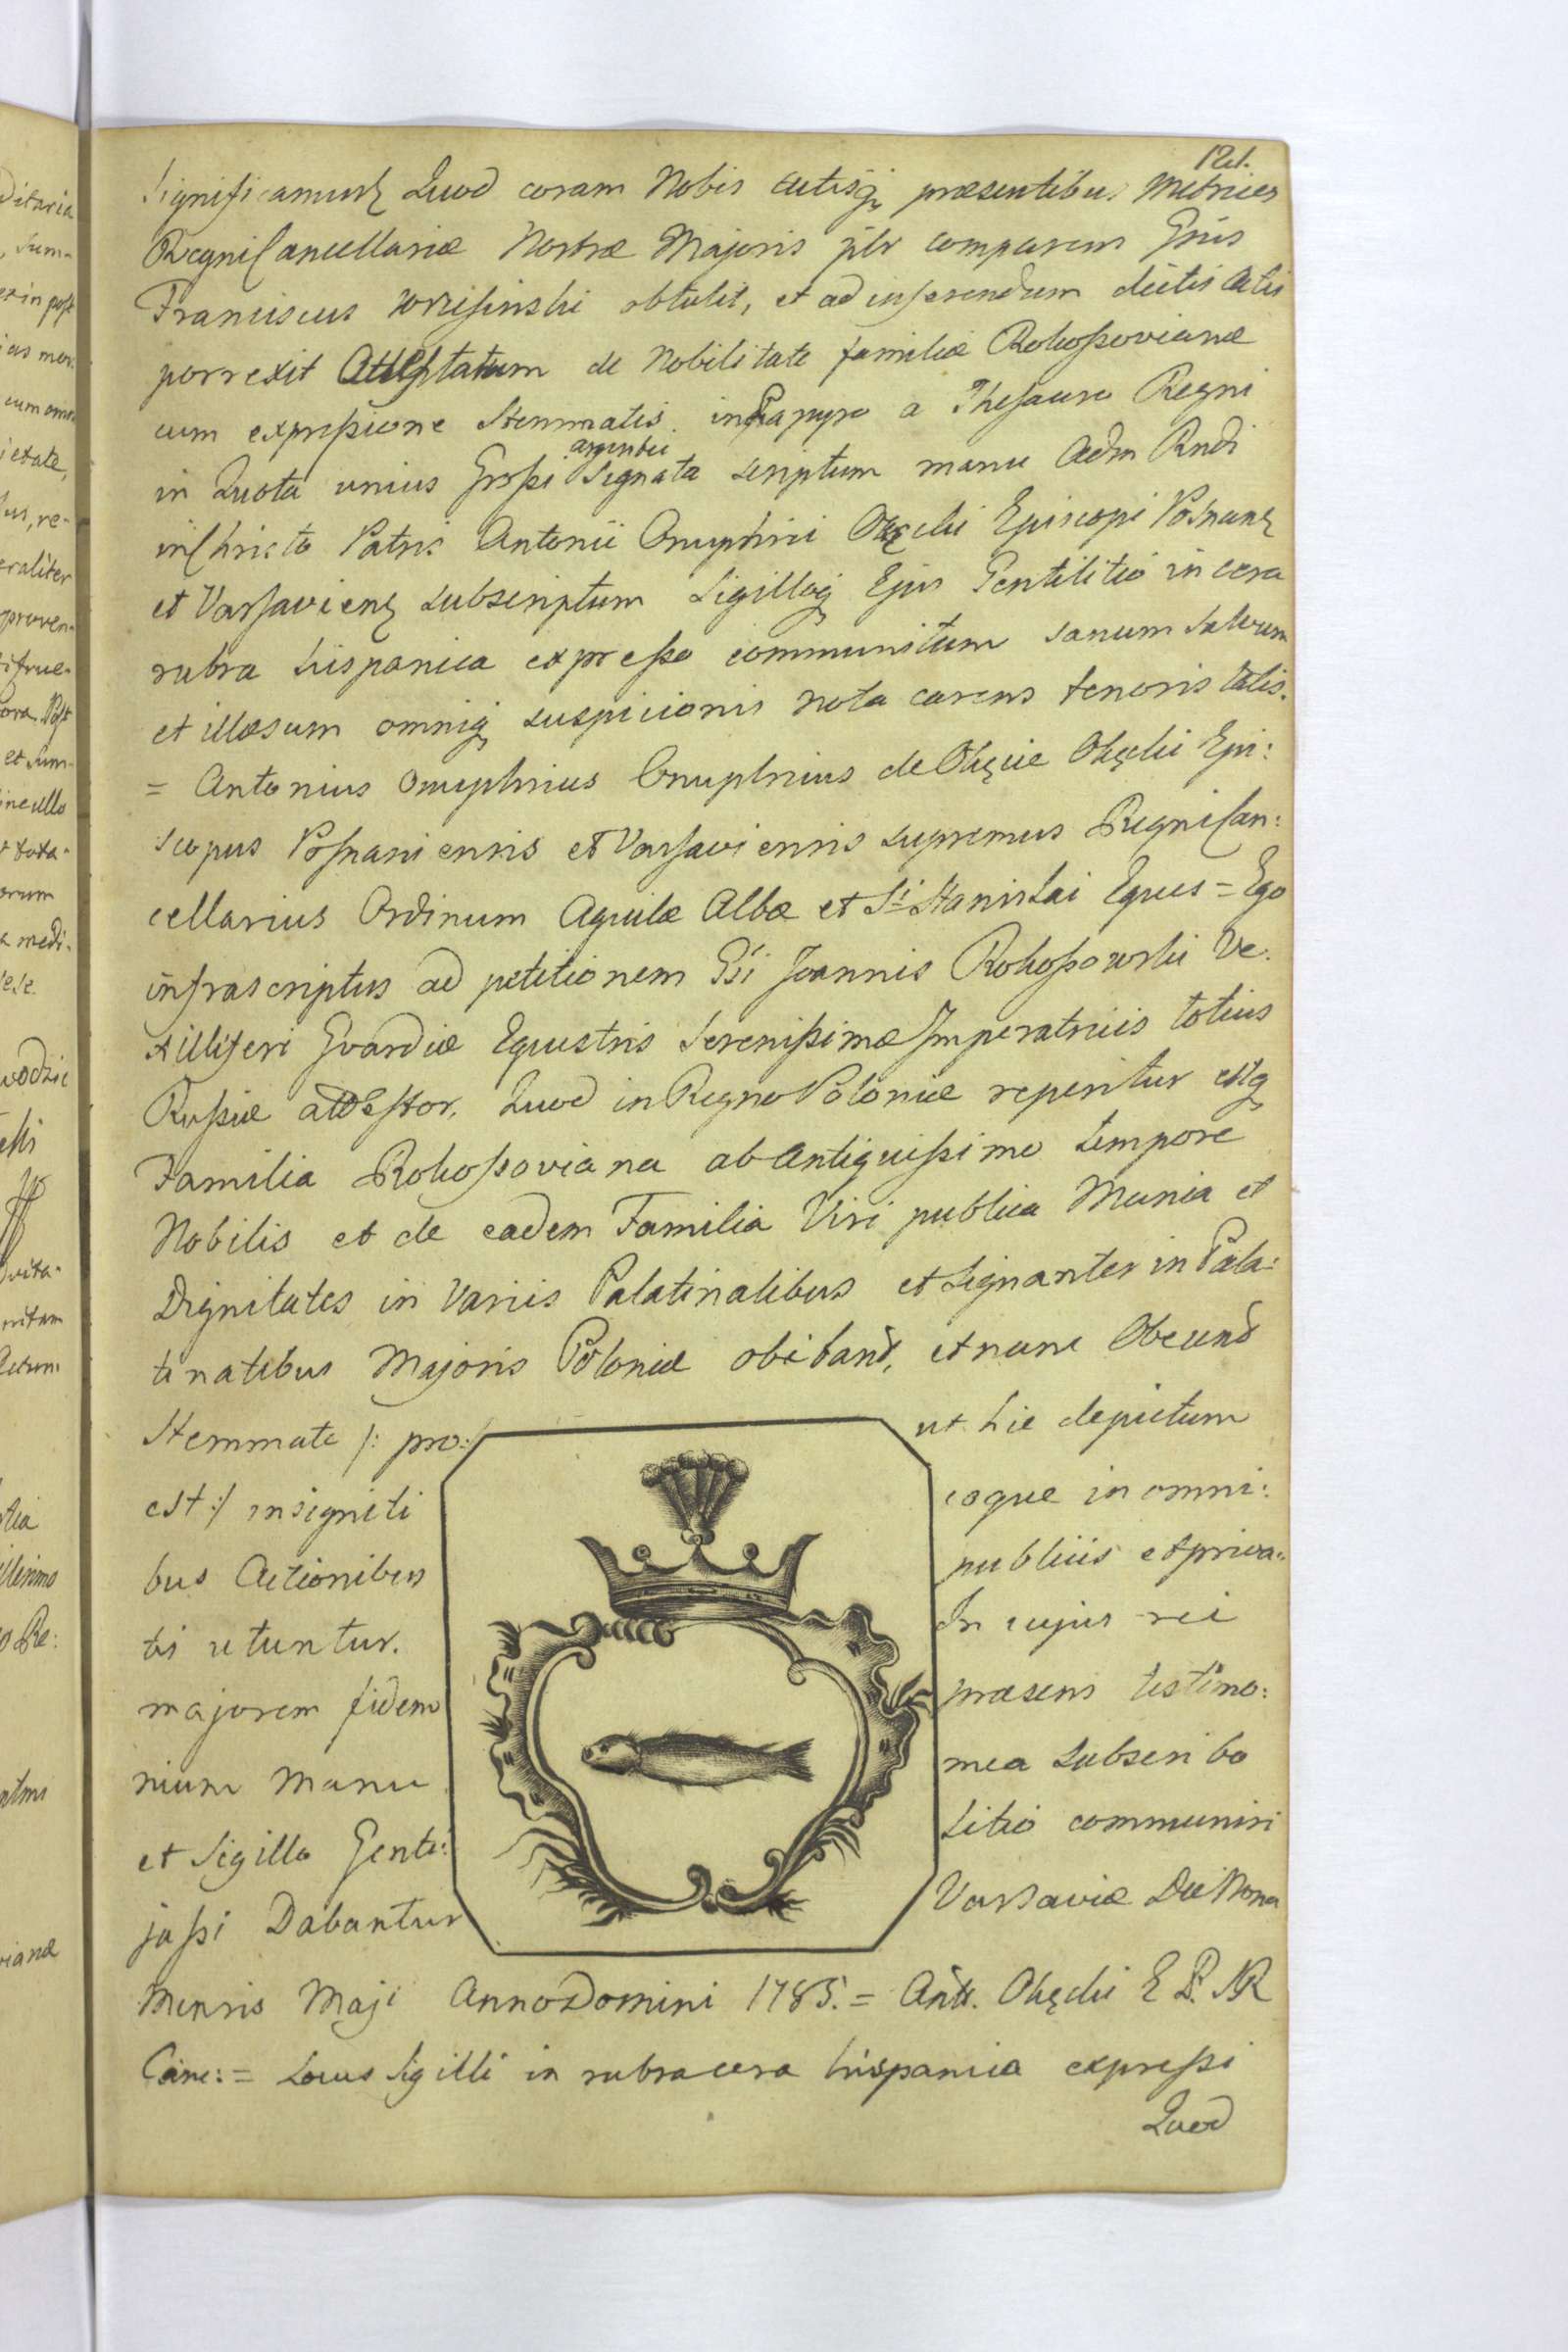 121.
Significamus Quod coram Nobis actisq præsentibus Metrices
Regni Cancellariæ Nostræ Majoris plr comparens Gsus
Franciscus Wrzesinski obtulit, et ad inserendum dictis actis
porrexit Attestatum de Nobilitate familiæ Rokoßovianæ
cum expreßione Stemmatis in Papyro a Thesauro Regni
in Quota unius Großi argentei Signata scriptum manu Adm Rndi
in Christo Patris Antonii Onuphrii Okęcki Episcopi Posnanꝫ
et Varsaviensꝫ subscriptum Sigilloq Ejus Gentilitio in cera
rubra hispanica expreßo communitum sanum salvum
et illæsum omniq suspicionis nota carens tenoris talis.
= Antonius Onuphrius Onuphrius de Okęcie Okęcki Epi:
scopus Posnaniensis et Varsaviensis supremus Regni Can:
cellarius Ordinum Aquilæ Albæ et Sti Stanislai Eques = Ego
infrascriptus ad petitionem Gsi Joannis Rokoßowski Ve:
xilliferi Gvardiæ Equestris Serenißimæ Imperatricis totius
Rußiæ attestor, Quod in Regno Poloniæ reperitur estq
Familia Rokoßoviana ab Antiquißimo tempore
Nobilis et de eadem Familia Viri publica Munia et
Dignitates in Variis Palatinatibus et Signanter in Pala:
tinatibus Majoris Poloniæ obibant, et nunc Obeunt
Stemmate /: pro: ut hic depictum
est :/ insigniti eoque in omni:
bus Actionibus publicis et priva:
tis utuntur. In cujus rei
majorem fidem præsens testimo:
nium Manu mea Subscribo
et Sigillo Genti: litio communiri
jaßi Dabantur Varsaviæ Die Nona
Mensis Maji Anno Domini 1785. = Antt. Okęcki E P. NR
Canc: = Locus Sigilli in rubra cera hispanica expreßi
Quod